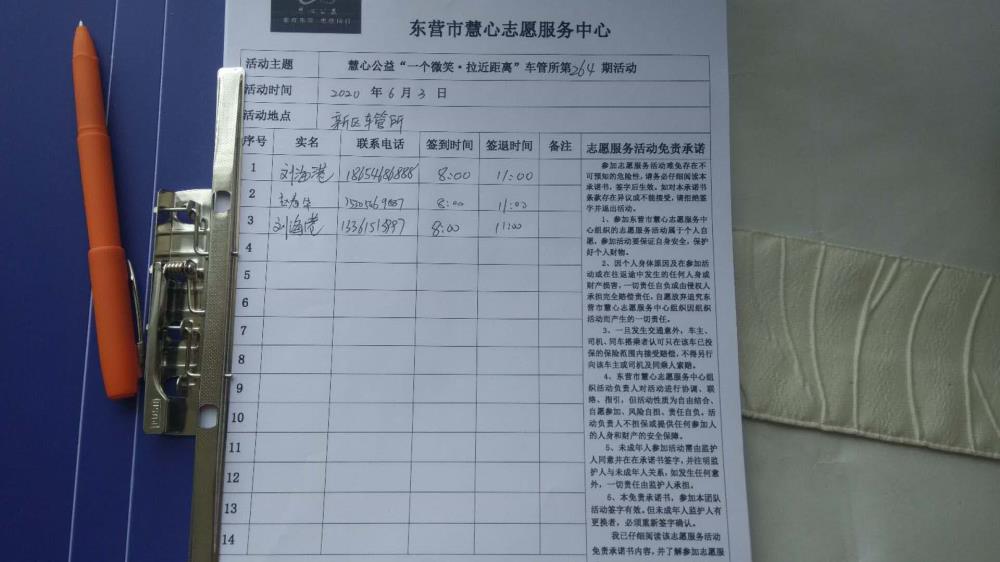 东营市慧心志愿服务中心
活动主题 慧心公益“一个微笑·拉近距离”车管所第264期活动
活动时间 2020 年 6 月 3 日
活动地点 新区车管所
序号 实名 联系电话 签到时间 签退时间 备注 志愿服务活动免责承诺
1 刘海港 18654686888 8:00 11:00
2 8:00 11:00
3 刘海港 8:00 11:00
4
5
6
7
8
9
10
11
12
13
14
参加志愿服务活动难免存在不
可预知的危险性，请务必仔细阅读本
承诺书，签字后生效。如对本承诺书
条款存在异议或不能接受，请拒绝签
字并退出活动。
1、参加东营市慧心志愿服务中
心组织的志愿服务活动属于个人自
愿，参加活动要保证自身安全，保护
好个人财物。
2、因个人身体原因及在参加活
动或在往返途中发生的任何人身或
财产损害，一切责任自负或由侵权人
承担完全赔偿责任，自愿放弃追究东
营市慧心志愿服务中心组织因组织
活动而产生的一切责任。
3、一旦发生交通意外，车主、
司机、同车搭乘者认可只在该车已投
保的保险范围内接受赔偿，不得另行
向该车主或司机及同乘人索赔。
4、东营市慧心志愿服务中心组
织活动负责人对活动进行协调、联
络、指引，但活动性质为自由结合、
自愿参加、风险自担、责任自负。活
动负责人不担保或提供任何参加人
的人身和财产的安全保障。
5、未成年人参加活动需由监护
人同意并在在承诺书签字，并注明监
护人与未成年人关系，如发生任何意
外，一切责任由监护人承担。
6、本免责承诺书，参加本团队
活动签字有效。但未成年人监护人有
更换者，必须重新签字确认。
我已仔细阅读该志愿服务活动
免责承诺书内容，并了解参加志愿服